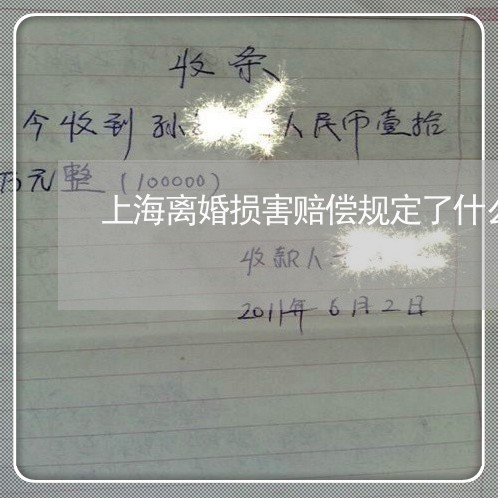 收条
今收到孙 人民币壹拾
万元整(100000)
上海离婚损害赔偿规定了什么
收款人
2011年6月2日